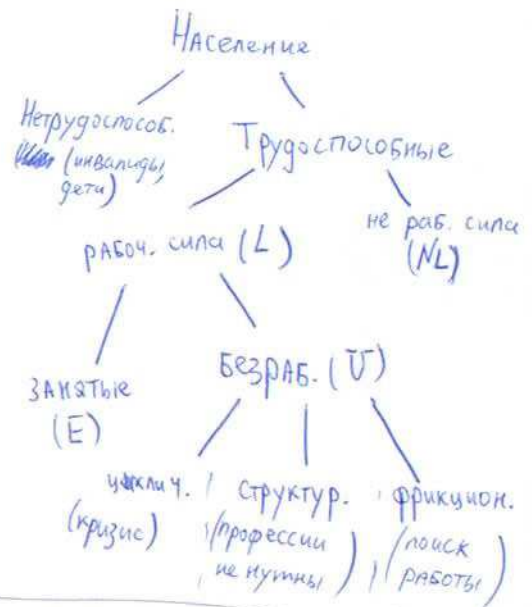 Население
Нетрудоспособ.
(инвалиды,
дети)
Трудоспособные
рабоч. сила (L)
не раб. сила
(NL)
занятые
(E)
безраб. (U)
циклич.
(кризис)
структур.
(профессии
не нужны)
фрикцион.
(поиск
работы)